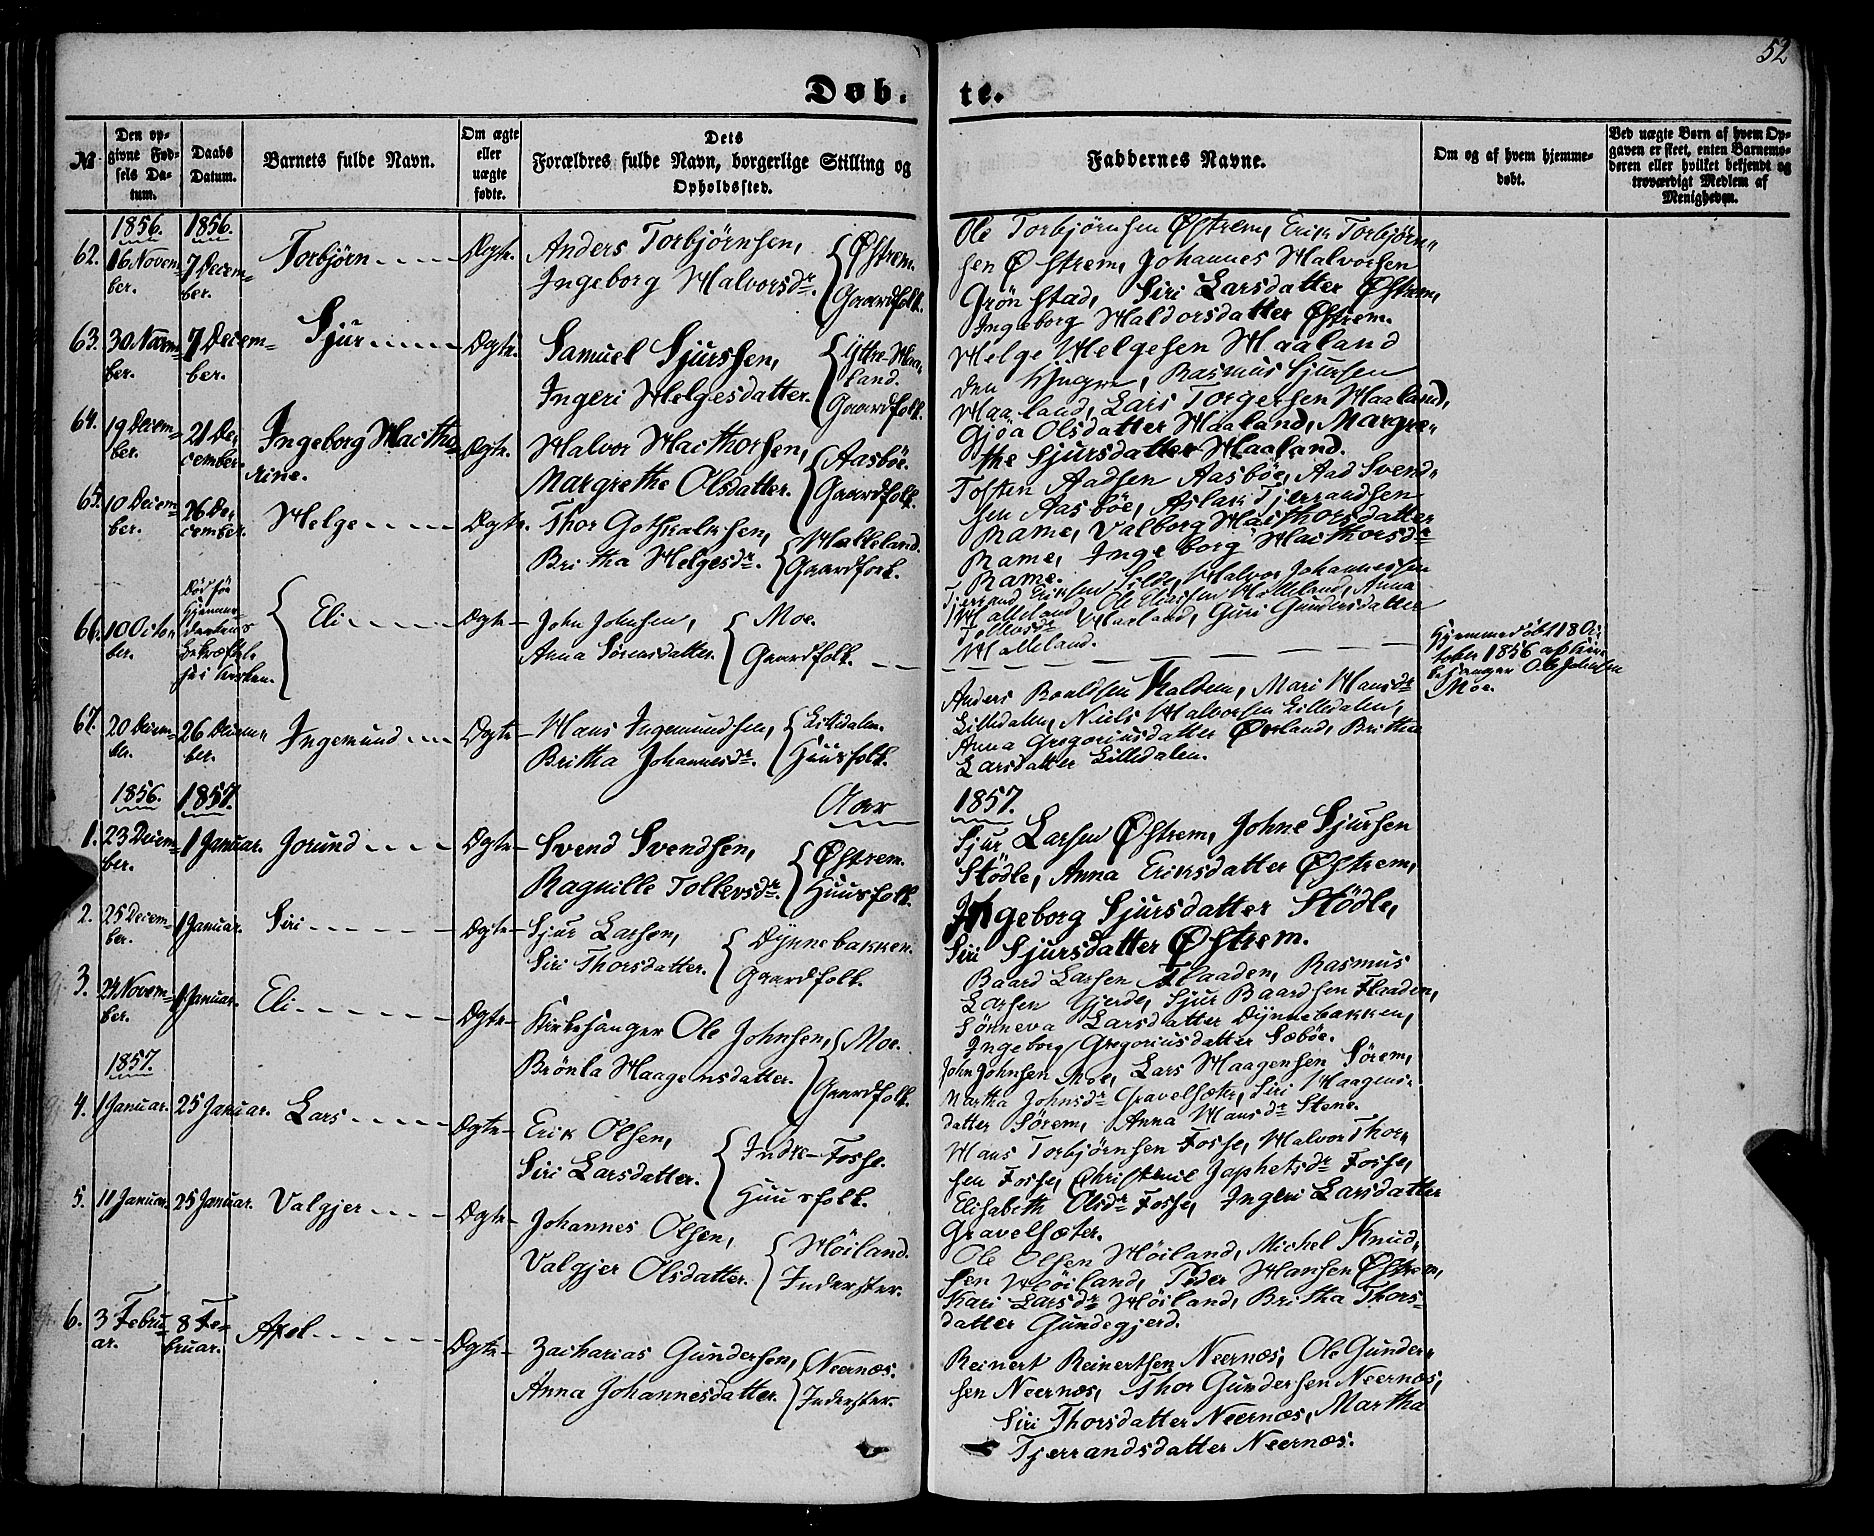 52
Døb. te.
No
Den op-
givne Fød-
sels Da-
tum.
Daabs
Datum.
Barnets fulde Navn.
Om ægte
eller
uægte
fødte.
Dets
Forældres fulde Navn, borgerlige Stilling og
Opholdssted.
Faddernes Navne.
Om og af hvem hjemme-
døbt.
Ved uægte Børn af hvem Op-
gaven er skeet, enten Barnemo-
deren eller hvilket bekjendt og
troværdigt Medlem af
Menigheden.
1856. 1856.
62. 16 Novem-
ber.
7 Decem-
ber.
Torbjörn
Ægte.
Anders Torbjörnsen,
Ingeborg Halvorsdr.
Østrem.
Gaardfolk.
Ole Torbjörnsen Østrem, Erik Torbjörn-
sen Østrem, Johannes Halvorsen
Grönstad, Siri Larsdatter Østrem,
Ingeborg Haldorsdatter Østrem.
63. 30 Novem-
ber.
7 Decem-
ber.
Sjur
Ægte.
Samuel Sjurssen,
Ingeri Helgesdatter.
Yttre-Maa-
land.
Gaardfolk.
Helge Helgesen Maaland
den Yngre, Rasmus Sjursen
Maaland, Lars Torgersen Maaland,
Gjöa Olsdatter Maaland, Margre-
the Sjursdatter Maaland.
64. 19 Decem-
ber.
21 De-
cember.
Ingeborg Macth
rine.
Ægte.
Halvor Macthorsen,
Margrethe Olsdatter.
Aasböe.
Gaardfolk.
Tosten Aadsen Aasböe, Aad Svend-
sen Aasböe, Aslak Tjerrandsen
Rame, Valborg Macthorsdatter
Rame, Ingeborg Macthorsdr
Rame.
65. 10 Decem-
ber.
26 De-
cember.
Helge
Ægte.
Thor Gothskalksen,
Britha Helgesdr.
Halleland.
Gaardfolk.
Tjerrand Eriksen Silde, Halvor Johannessen
Halleland, Ole Eliassen Halleland, Anna
Tollevsdr Haaland, Guri Gundersdatter
Halleland.
66. 10 Octo-
ber.
Död för
Hjemme-
daabens
Bekræftel-
se i Kirken.
Eli
Ægte
John Johnsen,
Anna Sörensdatter.
Moe.
Gaardfolk.
Hjemmedöbt 18 Oc-
tober 1856 af Kirke-
sanger Ole Johnsen
Moe.
67. 20 Decem-
ber.
26 Decem-
ber.
Ingemund
Ægte
Hans Ingemundsen,
Britha Johannesdr.
Lilledalen.
Huusfolk.
Anders Boaldsen Kalden, Mari Hansdr
Lilledalen, Niels Halvorsen Lilledalen,
Anna Gregoriusdatter Øvrland, Britha
Larsdatter Lilledalen.
1856. 1857.
Aar 1857.
1. 23 Decem-
ber.
1 Januar.
Jorund
Ægte
Svend Svendsen,
Ragnille Tollevsdr.
Østrem.
Huusfolk.
Sjur Larsen Østrem, Johne Sjursen
Stödle, Anna Eriksdatter Østrem,
Ingeborg Sjursdatter Stödle,
Siri Sjursdatter Østrem.
2. 25 Decem-
ber.
1 Januar.
Siri
Ægte
Sjur Larsen,
Siri Thorsdatter.
Dynnebakken.
Gaardfolk.
Baard Larsen Flaaden, Rasmus
Larsen Gjerde, Sjur Baardsen Flaaden,
Sönneva Larsdatter Dynnebakken,
Ingeborg Gregoriusdatter Sæböe.
3. 24 Novem-
ber.
1 Januar.
Eli
Ægte
Kirkesanger Ole Johnsen,
Brönla Haagensdatter.
Moe.
Gaardfolk.
John Johnsen Moe, Lars Haagensen Sörem,
Martha Johnsdr Gravelsæter, Siri Haagens-
datter Sörem, Anna Hansdr Stene.
1857.
4. 1 Januar. 25 Januar.
Lars
Ægte
Erik Olsen,
Siri Larsdatter.
Indre-Fosse.
Huusfolk.
Hans Torbjörnsen Fosse, Halvor Thor-
sen Fosse, Christense Japhetsdr Fosse,
Elisabeth Olsdr Fosse, Ingeri Larsdatter
Gravelsæter.
5. 11 Januar. 25 Januar.
Valgjer
Ægte
Johannes Olsen,
Valgjer Olsdatter.
Höiland.
Inderster.
Ole Olsen Höiland, Michel Knud-
sen Höiland, Peder Hansen Østrem,
Kari Larsdr Höiland, Britha Thors-
datter Gundegjerd.
6. 3 Febru-
ar.
8 Fe-
bruar.
Axel
Ægte
Zacharias Gundersen,
Anna Johannesdatter.
Neernæs.
Inderster.
Reinert Reinertsen Neernæs, Ole Gunder-
sen Neernæs, Thor Gundersen Neernæs,
Siri Thorsdatter Neernæs, Martha
Tjerrandsdatter Neernæs.